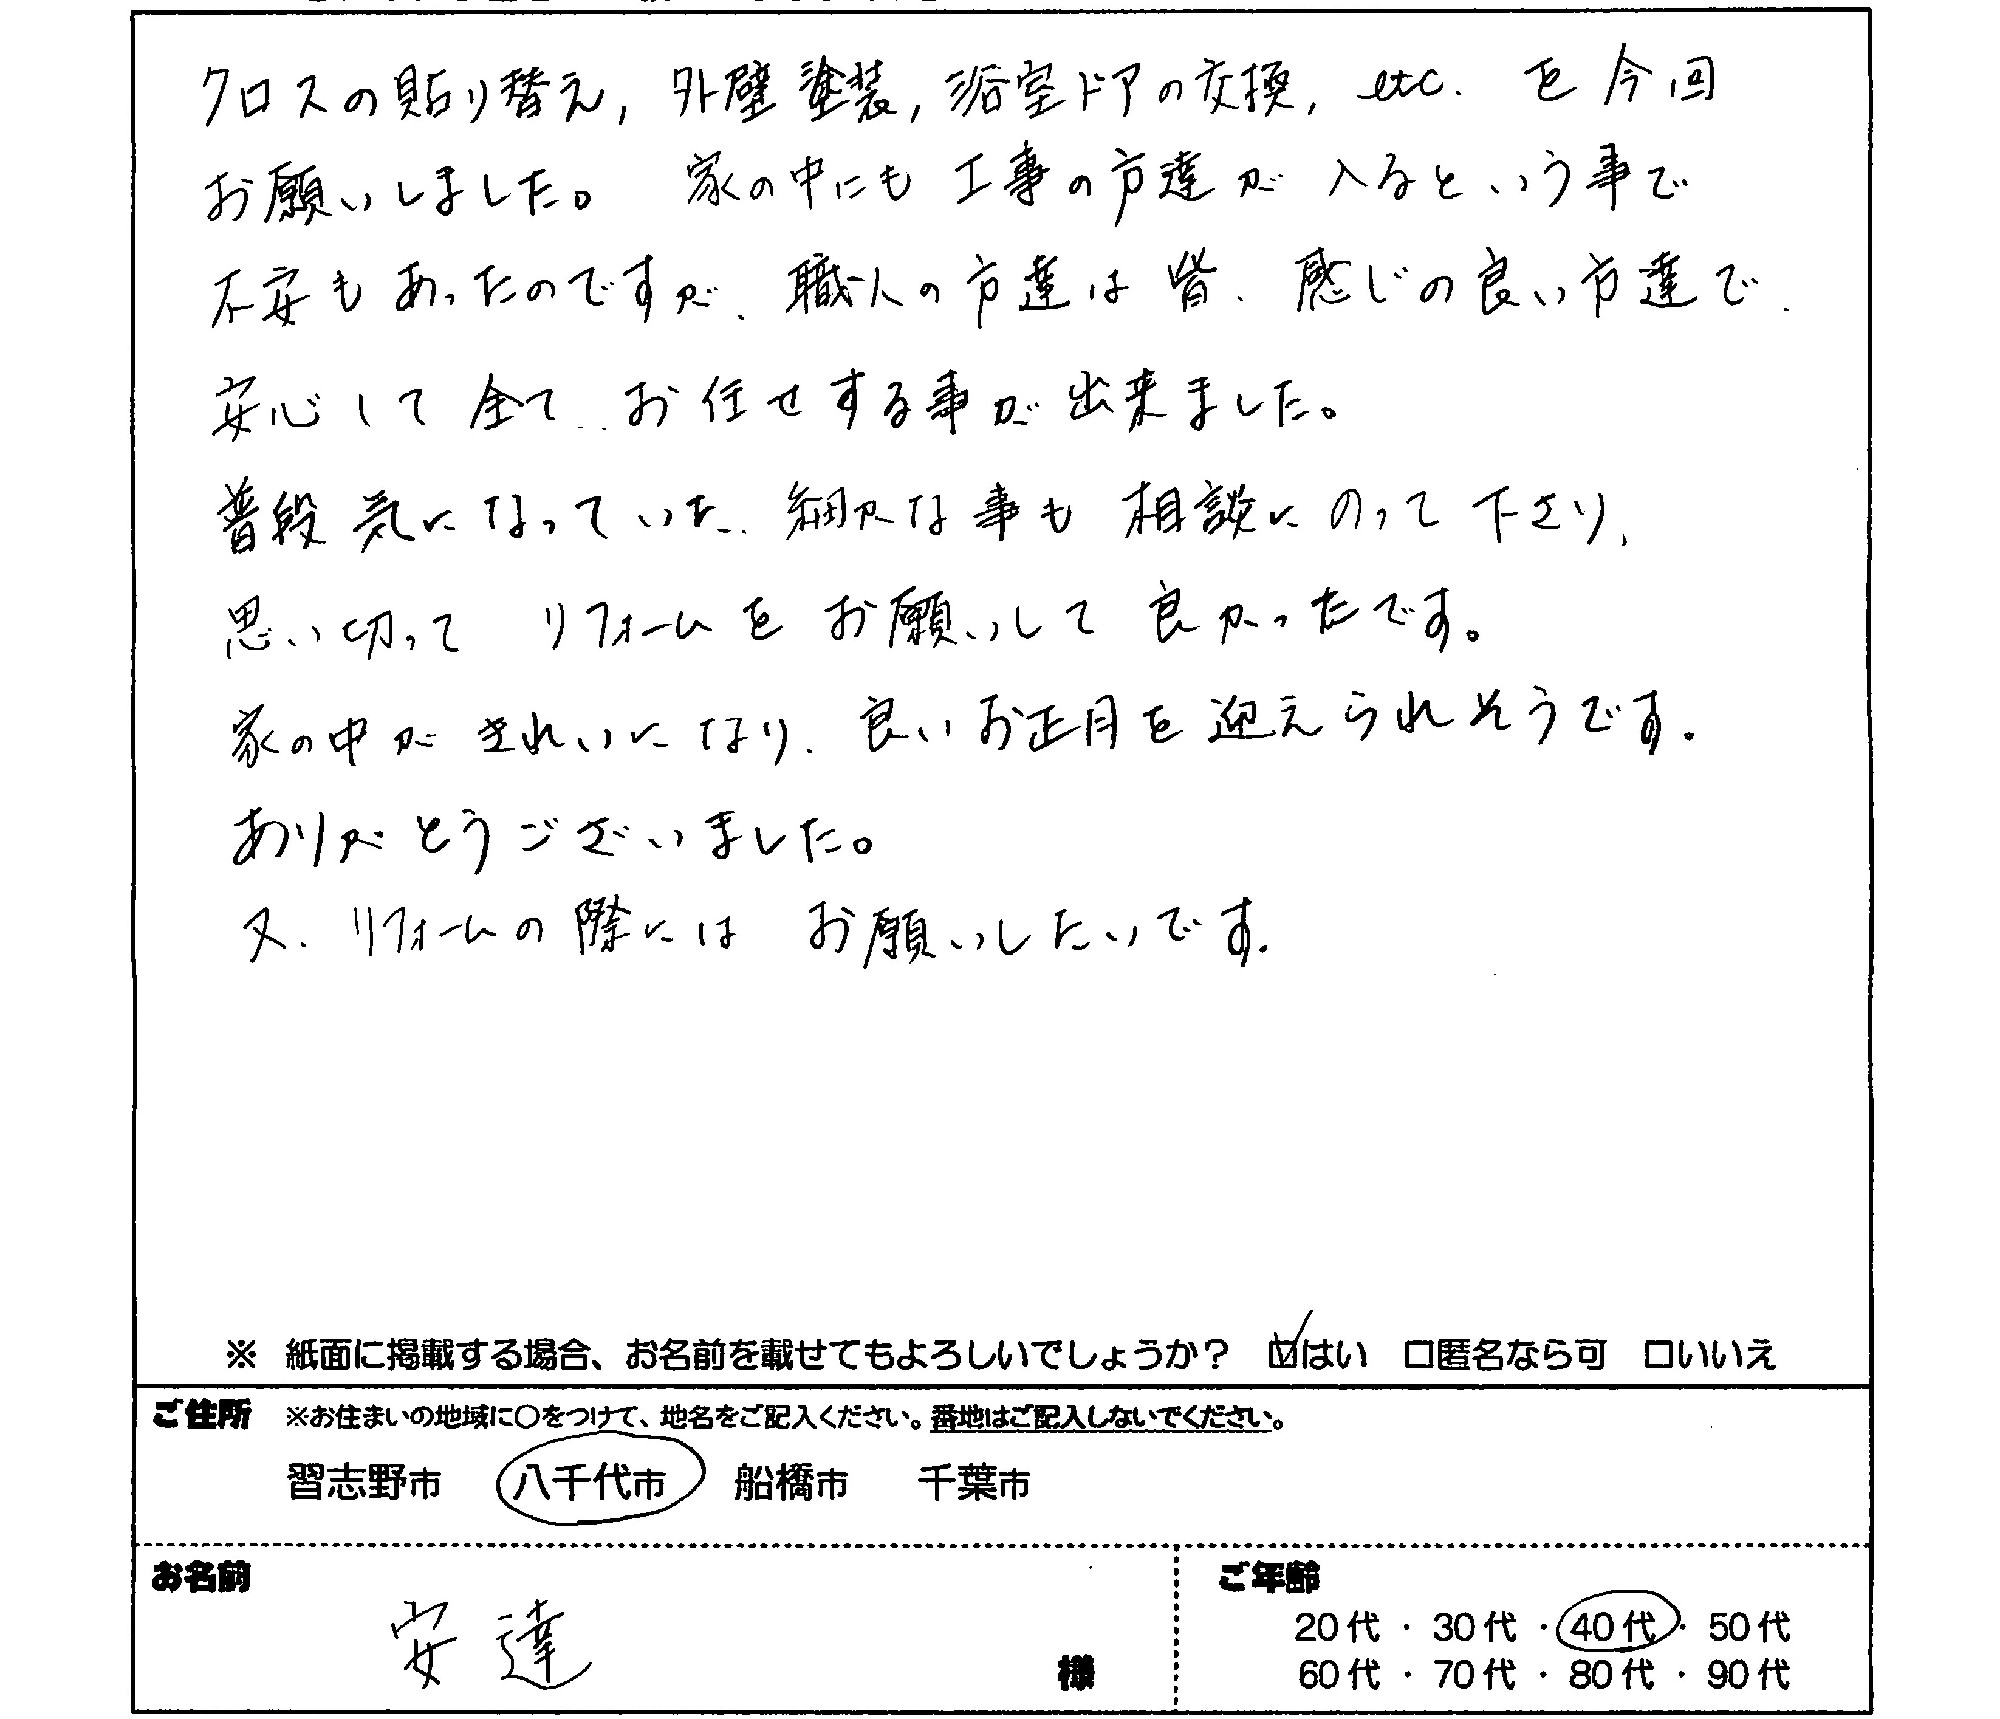 クロスの貼り替え, 外壁塗装, 浴室ドアの交換, etc. を今回
お願いしました。 家の中にも工事の方達が入るという事で
不安もあったのですが、職人の方達は皆、感じの良い方達で、
安心して全てお任せする事が出来ました。
普段気になっていた、細かな事も相談にのって下さり、
思い切って リフォームをお願いして良かったです。
家の中がきれいになり、良いお正月を迎えられそうです。
ありがとうございました。
又、リフォームの際にはお願いしたいです。
※ 紙面に掲載する場合、お名前を載せてもよろしいでしょうか? ☑はい □匿名なら可 □いいえ
ご住所 ※お住まいの地域に○をつけて、地名をご記入ください。番地はご記入しないでください。
習志野市 八千代市 船橋市 千葉市
お名前
安達 様
ご年齢
20代・30代・40代・50代
60代・70代・80代・90代